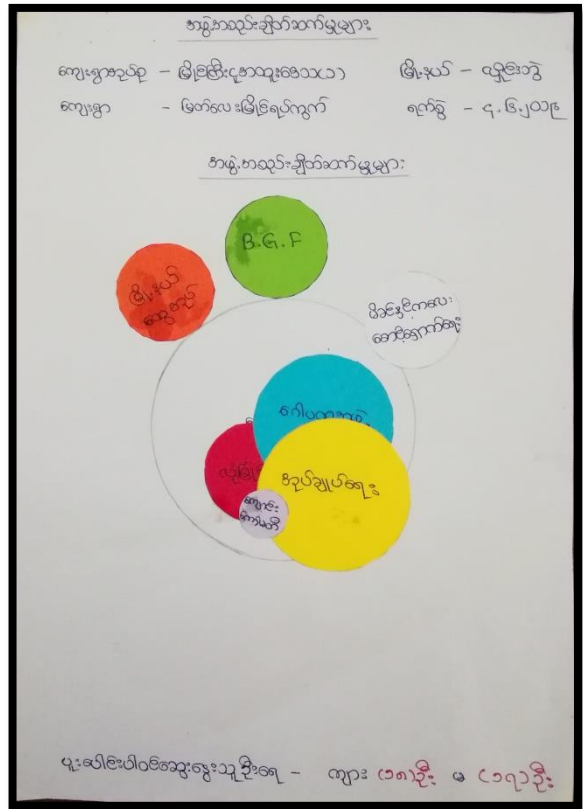 အဖွဲ့အစည်းချိတ်ဆက်မှုများ
ကျေးရွာအုပ်စု – မြိုင်ကြီးငူအထူးဒေသ(၁) မြို့နယ် – လှိုင်းဘွဲ
ကျေးရွာ – မြတ်လေးမြိုင်ရပ်ကွက် ရက်စွဲ – ၄.၆.၂၀၁၉
အဖွဲ့အစည်းချိတ်ဆက်မှုများ
B.G.F
မြို့နယ်
မိခင်နှင့်ကလေး
စောင့်ရှောက်ရေး
ဂေါပကအဖွဲ့
အုပ်ချုပ်ရေး
ကျောင်း
ကော်မတီ
ပူးပေါင်းပါဝင်ဆွေးနွေးသူဦးရေ – ကျား (၁၈)ဦး မ (၁၇)ဦး